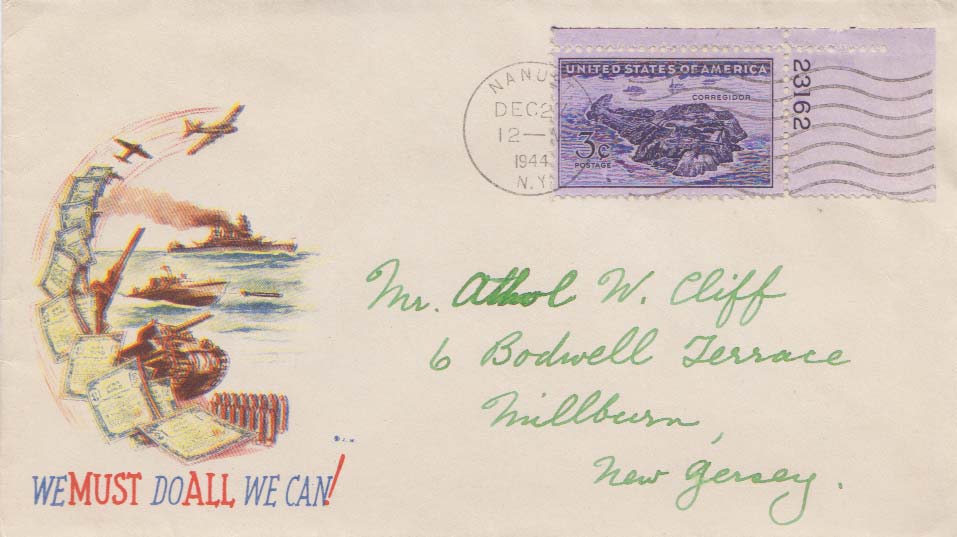 NANU
DEC 2
12—
1944
N.Y.
UNITED STATES OF AMERICA
CORREGIDOR
3c
POSTAGE
23162
Mr. Athol W. Cliff
6 Bodwell Terrace
Millburn,
New Jersey.
WE MUST DO ALL WE CAN!